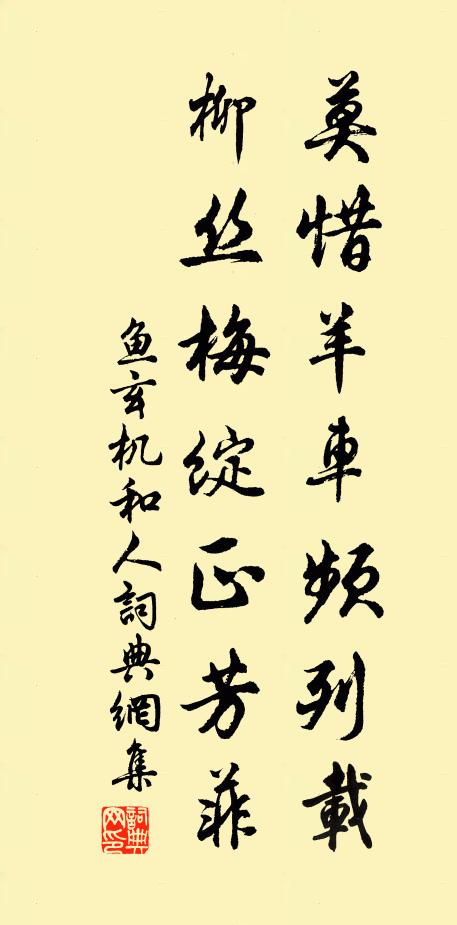 莫惜羊車頻列載
柳丝梅綻正芳菲
鱼玄机和人詞典網集
詞典网印